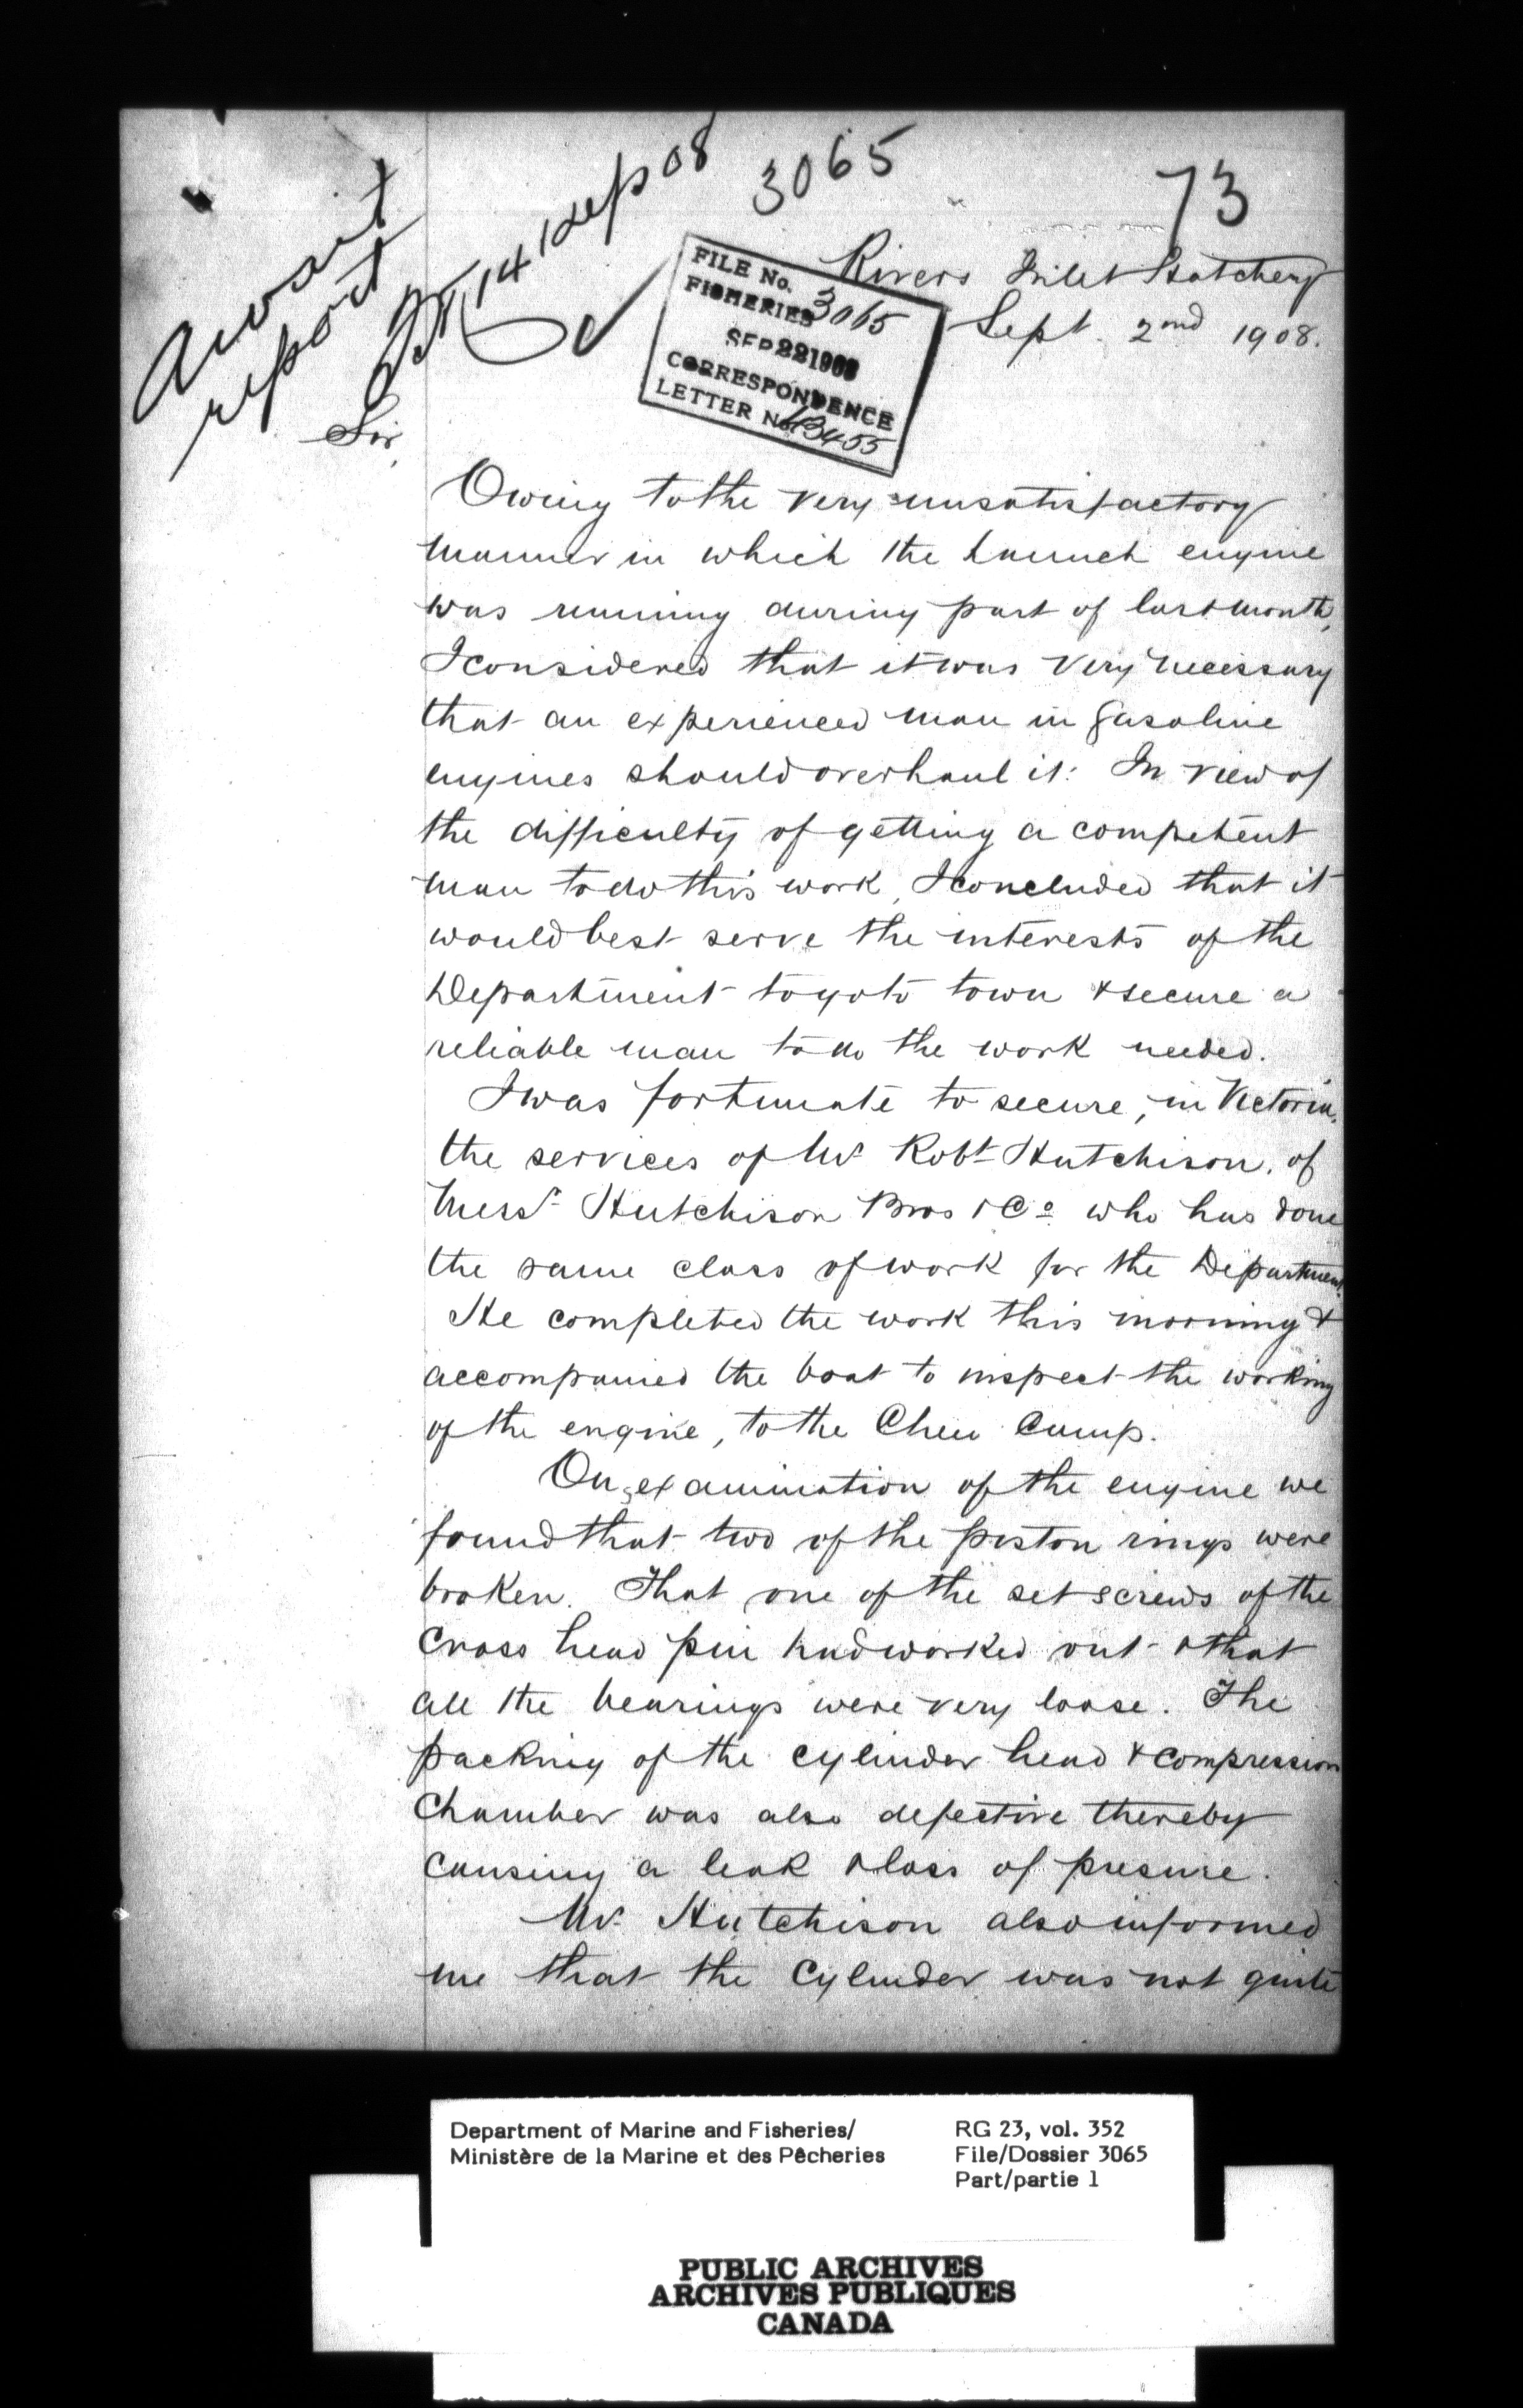 3065
73
await
report
14 Sep 08
FILE No.
FISHERIES 3065
SEP 22 1908
CORRESPONDENCE
LETTER No.
Rivers Inlet Hatchery
Sept. 2nd 1908.
Sir,
Owing to the very unsatisfactory
manner in which the launch engine
was running during part of last month,
I considered that it was very necessary
that an experienced man in gasoline
engines should overhaul it. In view of
the difficulty of getting a competent
man to do this work, I concluded that it
would best serve the interests of the
Department to go to town & secure a
reliable man to do the work needed.
I was fortunate to secure, in Victoria,
the services of Mr Robt Hutchison, of
Messrs Hutchison Bros & Co who has done
the same class of work for the Department.
He completed the work this morning &
accompanied the boat to inspect the working
of the engine, to the Cheu Camp.
On examination of the engine we
found that two of the piston rings were
broken. That one of the set screws of the
cross head pin had worked out & that
all the bearings were very loose. The
packing of the cylinder head & compression
chamber was also defective thereby
causing a leak & loss of presure.
Mr. Hutchison also informed
me that the cylinder was not quite
Department of Marine and Fisheries/
Ministère de la Marine et des Pêcheries
RG 23, vol. 352
File/Dossier 3065
Part/partie 1
PUBLIC ARCHIVES
ARCHIVES PUBLIQUES
CANADA